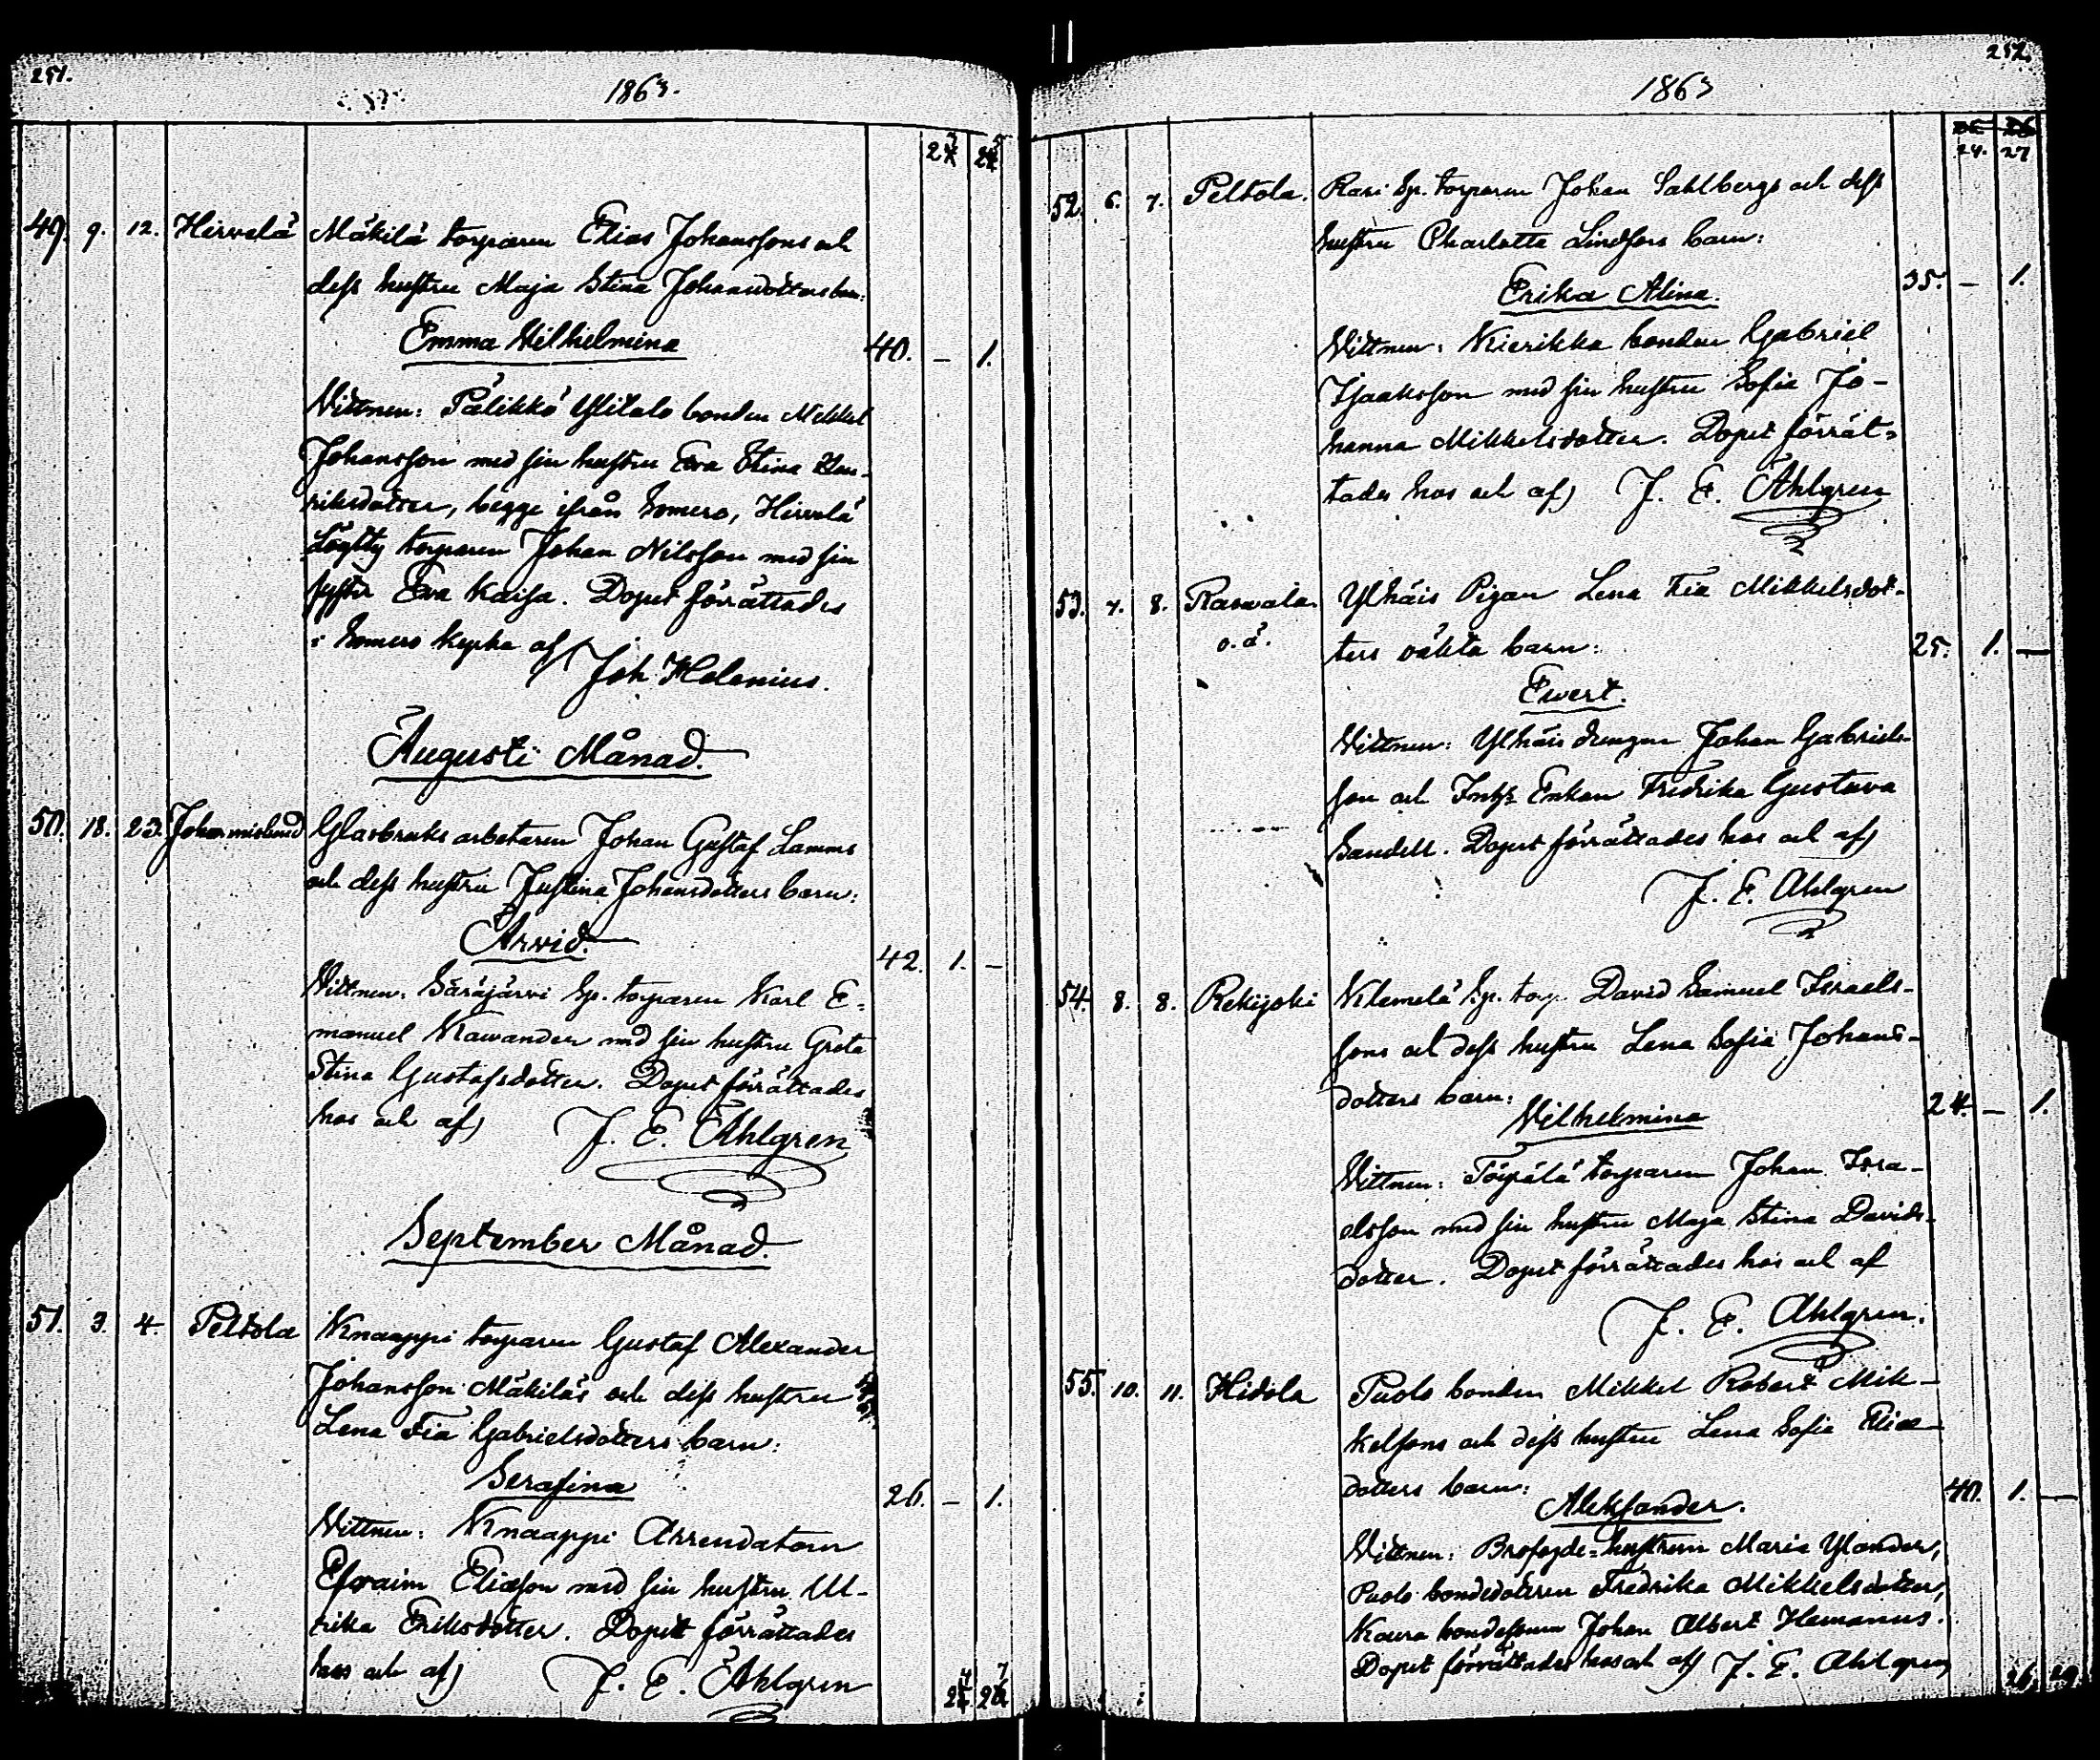 251.
1863.
49. 9. 12. Hirvelä Mäkilä torparen Elias Johanssons och
dess hustru Maja Stina Johansdotters barn:
Emma Wilhelmina 40. – 1.
Vittnen: Pälikkö Ylitalo bonden Mikkel
Johansson med sin hustru Eva Stina Hen-
riksdotter, begge ifrån Somero, Hirvelä
torparen Johan Nilsson med sin
syster Eva Kaisa. Dopet förrättades
i Somero kyrka af
Joh Helenius.
Augusti Månad.
50. 18. 23. Johannislund Glasbruks arbetaren Johan Gustaf Lamms
och dess hustru Justina Johansdotters barn:
Arvid. 42. 1. –
Vittnen: Säräjärvi Sp. torparen Karl E-
manuel Kawander med sin hustru Greta
Stina Gustafsdotter. Dopet förrättades
hos och af) J. E. Ahlgren
September Månad.
51. 3. 4. Peltola Knaappi torparen Gustaf Alexander
Johansson Mäkiläs och dess hustru
Lena Fia Gabrielsdotters barn:
Serafina 26. – 1.
Vittnen: Knaappi Arrendatorn
Efraim Eliasson med sin hustru Ul-
rika Eriksdotter. Dopet förrättades
hos och af) J. E. Ahlgren
252.
1863
24. 27
52. 6. 7. Peltola. Rasi Sp. torparen Johan Sahlbergs och dess
hustru Charlotta Lindfors barn:
Erika Alina. 35. – 1.
Vittnen: Kierikka bonden Gabriel
Isaaksson med sin hustru Sofia Jo-
hanna Mikkelsdotter. Dopet förrät-
tades hos och af) J. E. Ahlgren
53. 7. 8. Raswala Ylhäis Pigan Lena Fia Mikkelsdot-
o. ä. ters oäkta barn: 25. 1. –
Ewert.
Vittnen: Ylhäis drengen Johan Gabriels-
son och Inhs Enkan Fredrika Gustava
Sandell. Dopet förrättades hos och af)
J. E. Ahlgren
54. 8. 8. Rekijoki Klemelä Sp. torp. David Samuel Israels-
sons och dess hustru Lena Sofia Johans-
dotters barn: 24. – 1.
Wilhelmina
Vittnen: Töypälä torparen Johan Isra-
elsson med sin hustru Maja Stina Davids-
dotter. Dopet förrättades hos och af
J. E. Ahlgren.
55. 10. 11. Hidola Puolo bonden Mikkel Robert Mik-
kelsons och dess hustru Lena Sofia Elias-
dotters barn: 40. 1. –
Aleksander.
Vittnen: Brofogde-hustrun Maria Ylander,
Puolo bondedottren Fredrika Mikkelsdotter,
Kaura bondesonen Johan Albert Hemanus.
Dopet förrättades hos och af) J. E. Ahlgren